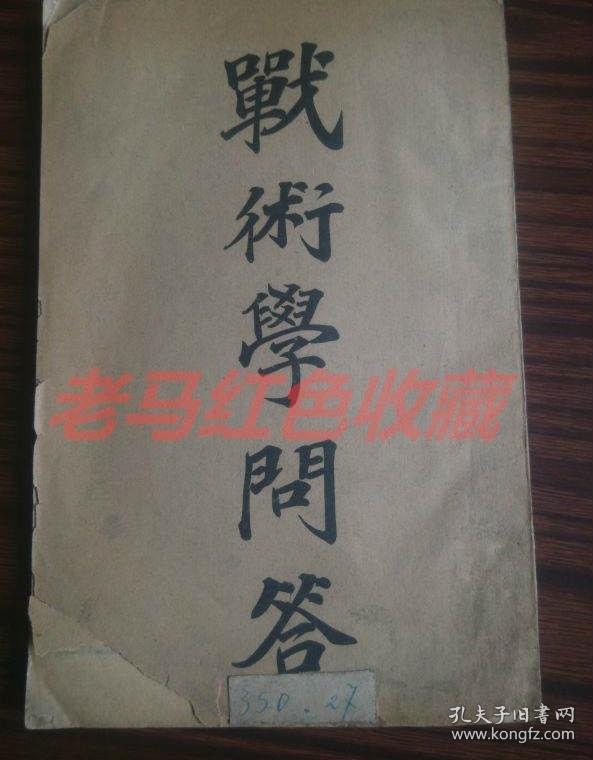 戰術學問答
老马红色收藏
350.27
孔夫子旧书网
www.kongfz.com